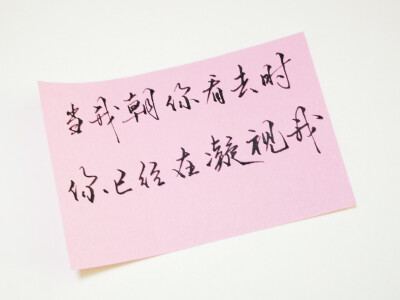 当我朝你看去时
你已经在凝视我